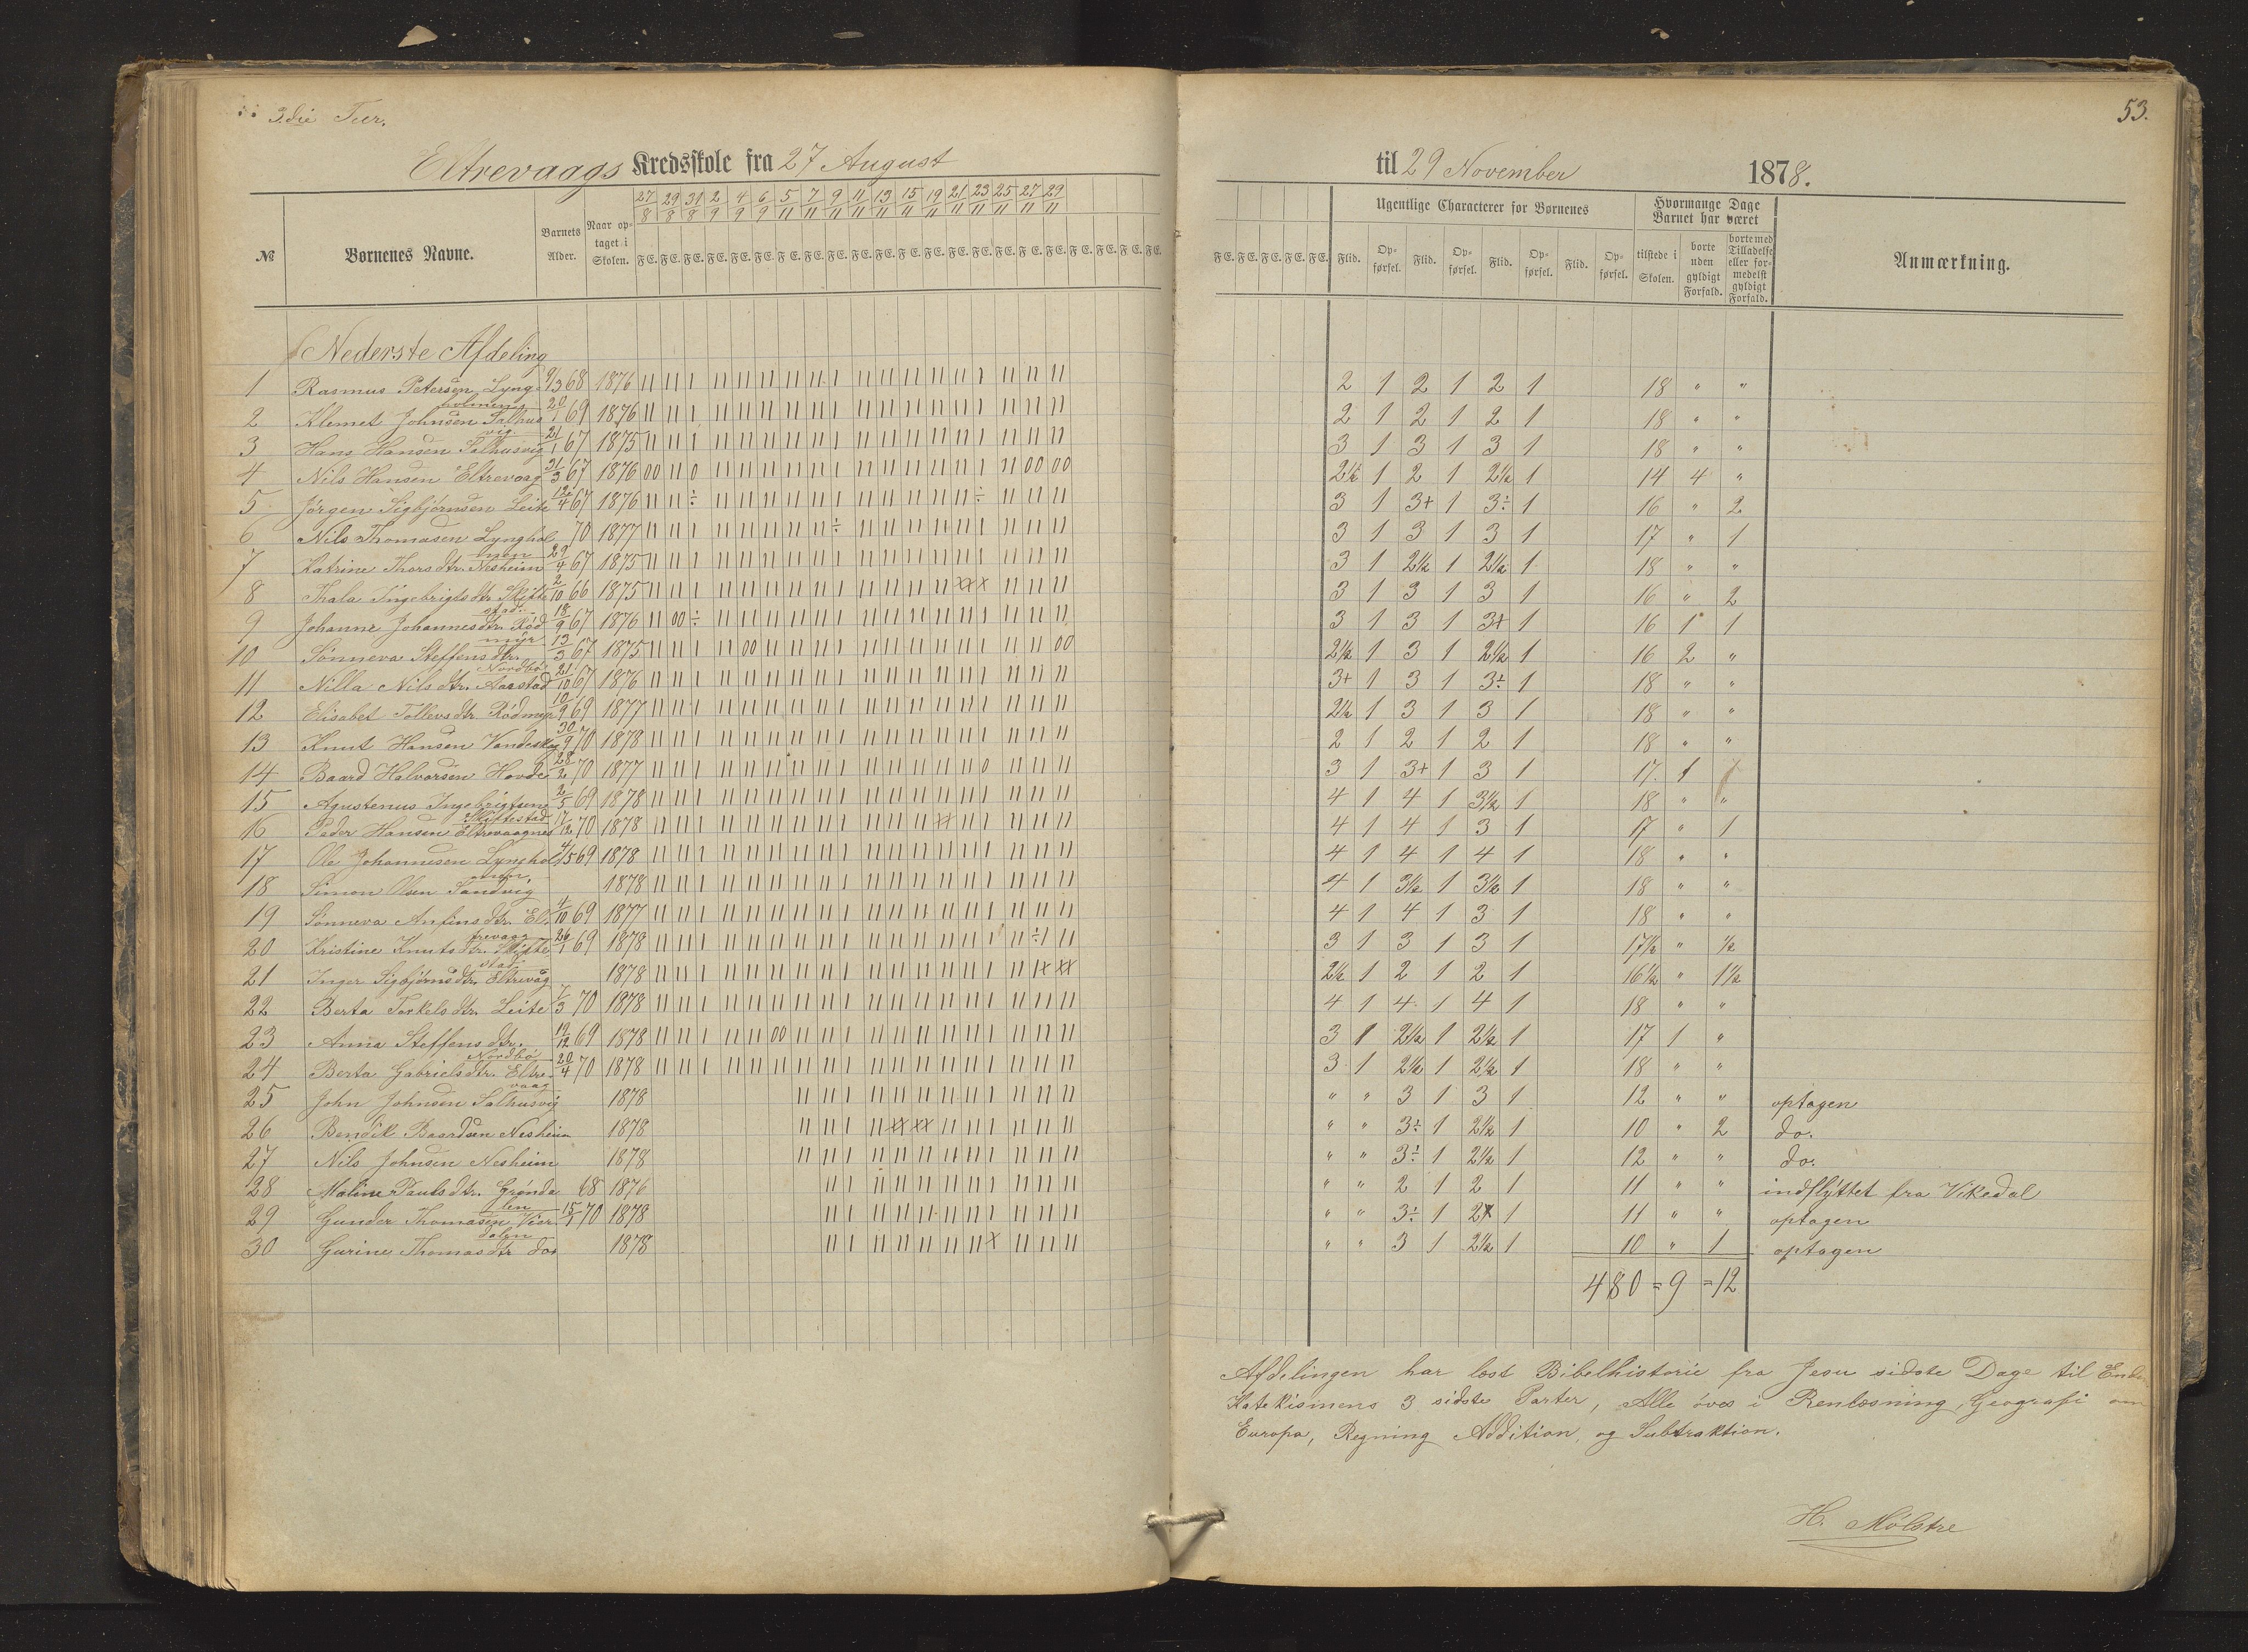 3die Tur.
53.
Eltrevaags Kredsskole fra 27 August til 29 November 1878.
№ Børnenes Navne. Barnets Alder. Naar optaget i Skolen. 27/8 29/8 31/8 2/9 4/9 6/9 5/11 7/11 9/11 11/11 13/11 15/11 19/11 21/11 23/11 25/11 27/11 29/11
F E. F E. F E. F E. F E. F E. F E. F E. F E. F E. F E. F E. F E. F E. F E. F E. F E. F E. F E. F E. F E. F E.
F E. F E. F E. F E. F E. Ugentlige Characterer for Børnenes Hvormange Dage Barnet har været Anmærkning.
Flid. Opførsel. Flid. Opførsel. Flid. Opførsel. Flid. Opførsel. tilstede i Skolen. borte uden gyldigt Forfald. borte med Tilladelse eller formedelst gyldigt Forfald.
Nederste Afdeling
1 Rasmus Petersen Lyngholmen 9/3 68 1876 2 1 2 1 2 1 18 " "
2 Klemet Johnsen Salhusvig 20/1 69 1876 2 1 2 1 2 1 18 " "
3 Hans Hansen Salhusvig 21/1 67 1875 3 1 3 1 3 1 18 " "
4 Nils Hansen Eltrevaag 31/3 67 1876 2½ 1 2 1 2½ 1 14 4 "
5 Jørgen Sigbjørnsen Leite 12/4 67 1876 3 1 3+ 1 3÷ 1 16 " 2
6 Nils Thomasen Lyngholmen 70 1877 3 1 3 1 3 1 17 " 1
7 Katrine Thorsdtr. Nesheim 29/4 67 1875 3 1 2½ 1 2½ 1 18 " "
8 Thala Ingebrigtsdtr Skiftestad 2/10 66 1875 3 1 3 1 3 1 16 " 2
9 Johanne Johannesdtr. Rødmyr 18/9 67 1876 3 1 3 1 3+ 1 16 1 1
10 Sønneva Steffensdtr. Nordbø 13/3 67 1875 2½ 1 3 1 2½ 1 16 2 "
11 Nilla Nilsdtr. Aarstad 21/10 67 1876 3+ 1 3 1 3÷ 1 18 " "
12 Elisabet Tollevsdtr Rødmyr 10/9 69 1877 2½ 1 3 1 3 1 18 " "
13 Knut Hansen Vandeskog 30/9 70 1878 2 1 2 1 2 1 18 " "
14 Baard Halvorsen Hovde 28/2 70 1877 3 1 3+ 1 3 1 17. 1
15 Agustenus Ingebrigtsen Skiftestad 2/5 69 1878 4 1 4 1 3½ 1 18 " "
16 Peder Hansen Eltrevaagnes 17/12 70 1878 4 1 4 1 3 1 17 " 1
17 Ole Johannesen Lyngholmen 4/5 69 1878 4 1 4 1 4 1 18 " "
18 Simon Olsen Sandvig 1878 4 1 3½ 1 3½ 1 18 " "
19 Sønneva Anfinsdtr. Eltrevaag 4/10 69 1877 4 1 4 1 3 1 18 " "
20 Kristine Knutsdtr. Skiftestad 26/1 69 1878 3 1 3 1 3 1 17½ " ½
21 Inger Sigbjørnsdtr. Eltrevåg 1878 2½ 1 2 1 2 1 16½ " 1½
22 Berta Torkelsdtr. Leite 7/3 70 1878 4 1 4 1 4 1 18 " "
23 Anna Steffensdtr. Nordbø 12/12 69 1878 3 1 2½ 1 2½ 1 17 1 "
24 Berta Gabrielsdtr. Eltrevaag 20/4 70 1878 3 1 2½ 1 2½ 1 18 " "
25 John Johnsen Salhusvig 1878 " " 3 1 3 1 12 " " optagen
26 Bendik Baardsen Nesheim 1878 " " 3÷ 1 2½ 1 10 " 2 do.
27 Nils Johnsen Nesheim 1878 " " 3÷ 1 2½ 1 12 " " do.
28 Maline Paulsdtr. Grøndalen 68 1876 " " 2 1 2 1 11 " " indflyttet fra Vikedal
29 Gunder Thomasen 15/1 70 1878 " " 3÷ 1 2 1 11 " " optagen
30 Gurine Thomasdtr do. 1878 " " 3 1 2½ 1 10 " 1 optagen
480 = 9 = 12
Afdelingen har læst Bibelhistorie fra Jesu sidste Dage til Ende
Katekismens 3 sidste Parter, Alle øves i Renlæsning, Geografi om
Europa, Regning Addition, og Subtraktion.
H. Mølstre